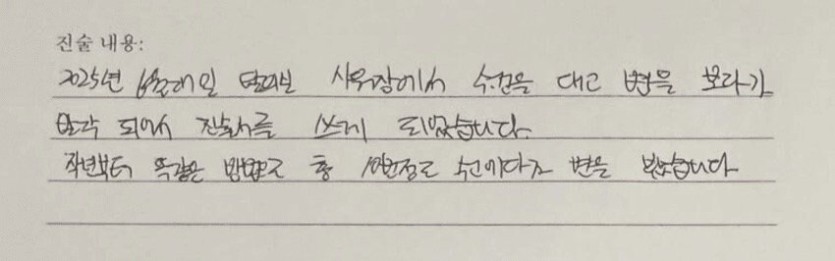 진술 내용:
2025년 6월26일 샤워장에서 수건을 대고 변을 보다가
발각 되어서 진술서를 쓰게 되었습니다.
작년부터 똑같은 방법으로 총 10번정도 수건에다가 변을 봤습니다